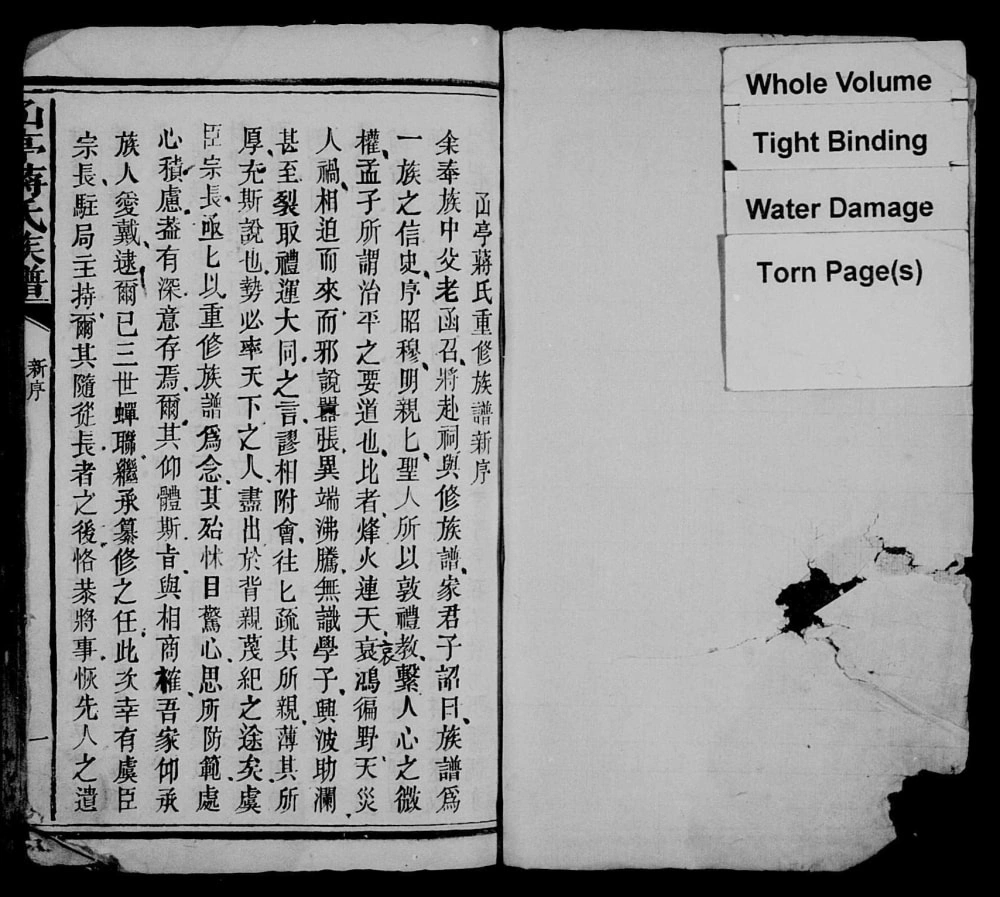 Whole Volume
Tight Binding
Water Damage
Torn Page(s)
亭蔣氏重修族譜新序
余奉族中父老函召、將赴祠與修族譜、家君子詔曰、族譜爲
一族之信史、序昭穆、明親匕、聖人所以敦禮教、繫人心之微
權、孟子所謂治平之要道也、比者烽火連天、哀鴻徧野、天災
人禍、相迫而來、而邪說囂張、異端沸騰、無識學子、興波助瀾、
甚至裂取禮運大同之言、謬相附會、往匕疏其所親、薄其所
厚、充斯說也、勢必率天下之人、盡出於背親蔑紀之途矣、虞
臣宗長、亟匕以重修族譜爲念、其殆怵目驚心、思所防範、處
心積慮、葢有深意存焉、爾其仰體斯旨、與相商榷、吾家仰承
族人愛戴、逮爾已三世蟬聯、繼承纂修之任、此次幸有虞臣
宗長、駐局主持、爾其隨從長者之後、恪恭將事、恢先人之遺
亭蔣氏族譜
新序
一